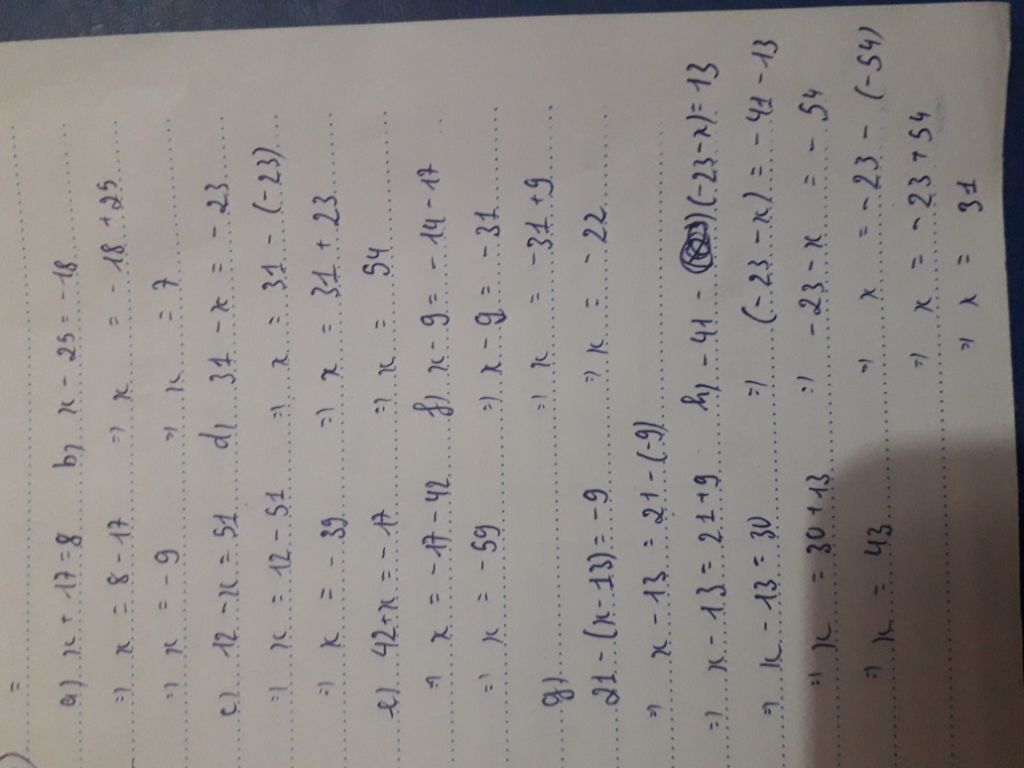 =
a) x + 17 = 8 b) x - 25 = -18
=) x = 8 - 17 =) x = -18 + 25
=) x = -9 =) x = 7
c) 12 - x = 51 d) 31 - x = -23
=) x = 12 - 51 =) x = 31 - (-23)
=) x = -39 =) x = 31 + 23
e) 42 + x = -17 =) x = 54
=) x = -17 - 42 f) x - 9 = -14 - 17
=) x = -59 =) x - 9 = -31
g) =) x = -31 + 9
21 - (x - 13) = -9 =) x = -22
=) x - 13 = 21 - (-9)
=) x - 13 = 21 + 9 h) -41 - (-23 - x) = 13
=) x - 13 = 30 =) (-23 - x) = -41 - 13
=) x = 30 + 13 =) -23 - x = -54
=) x = 43 =) x = -23 - (-54)
=) x = -23 + 54
=) x = 31